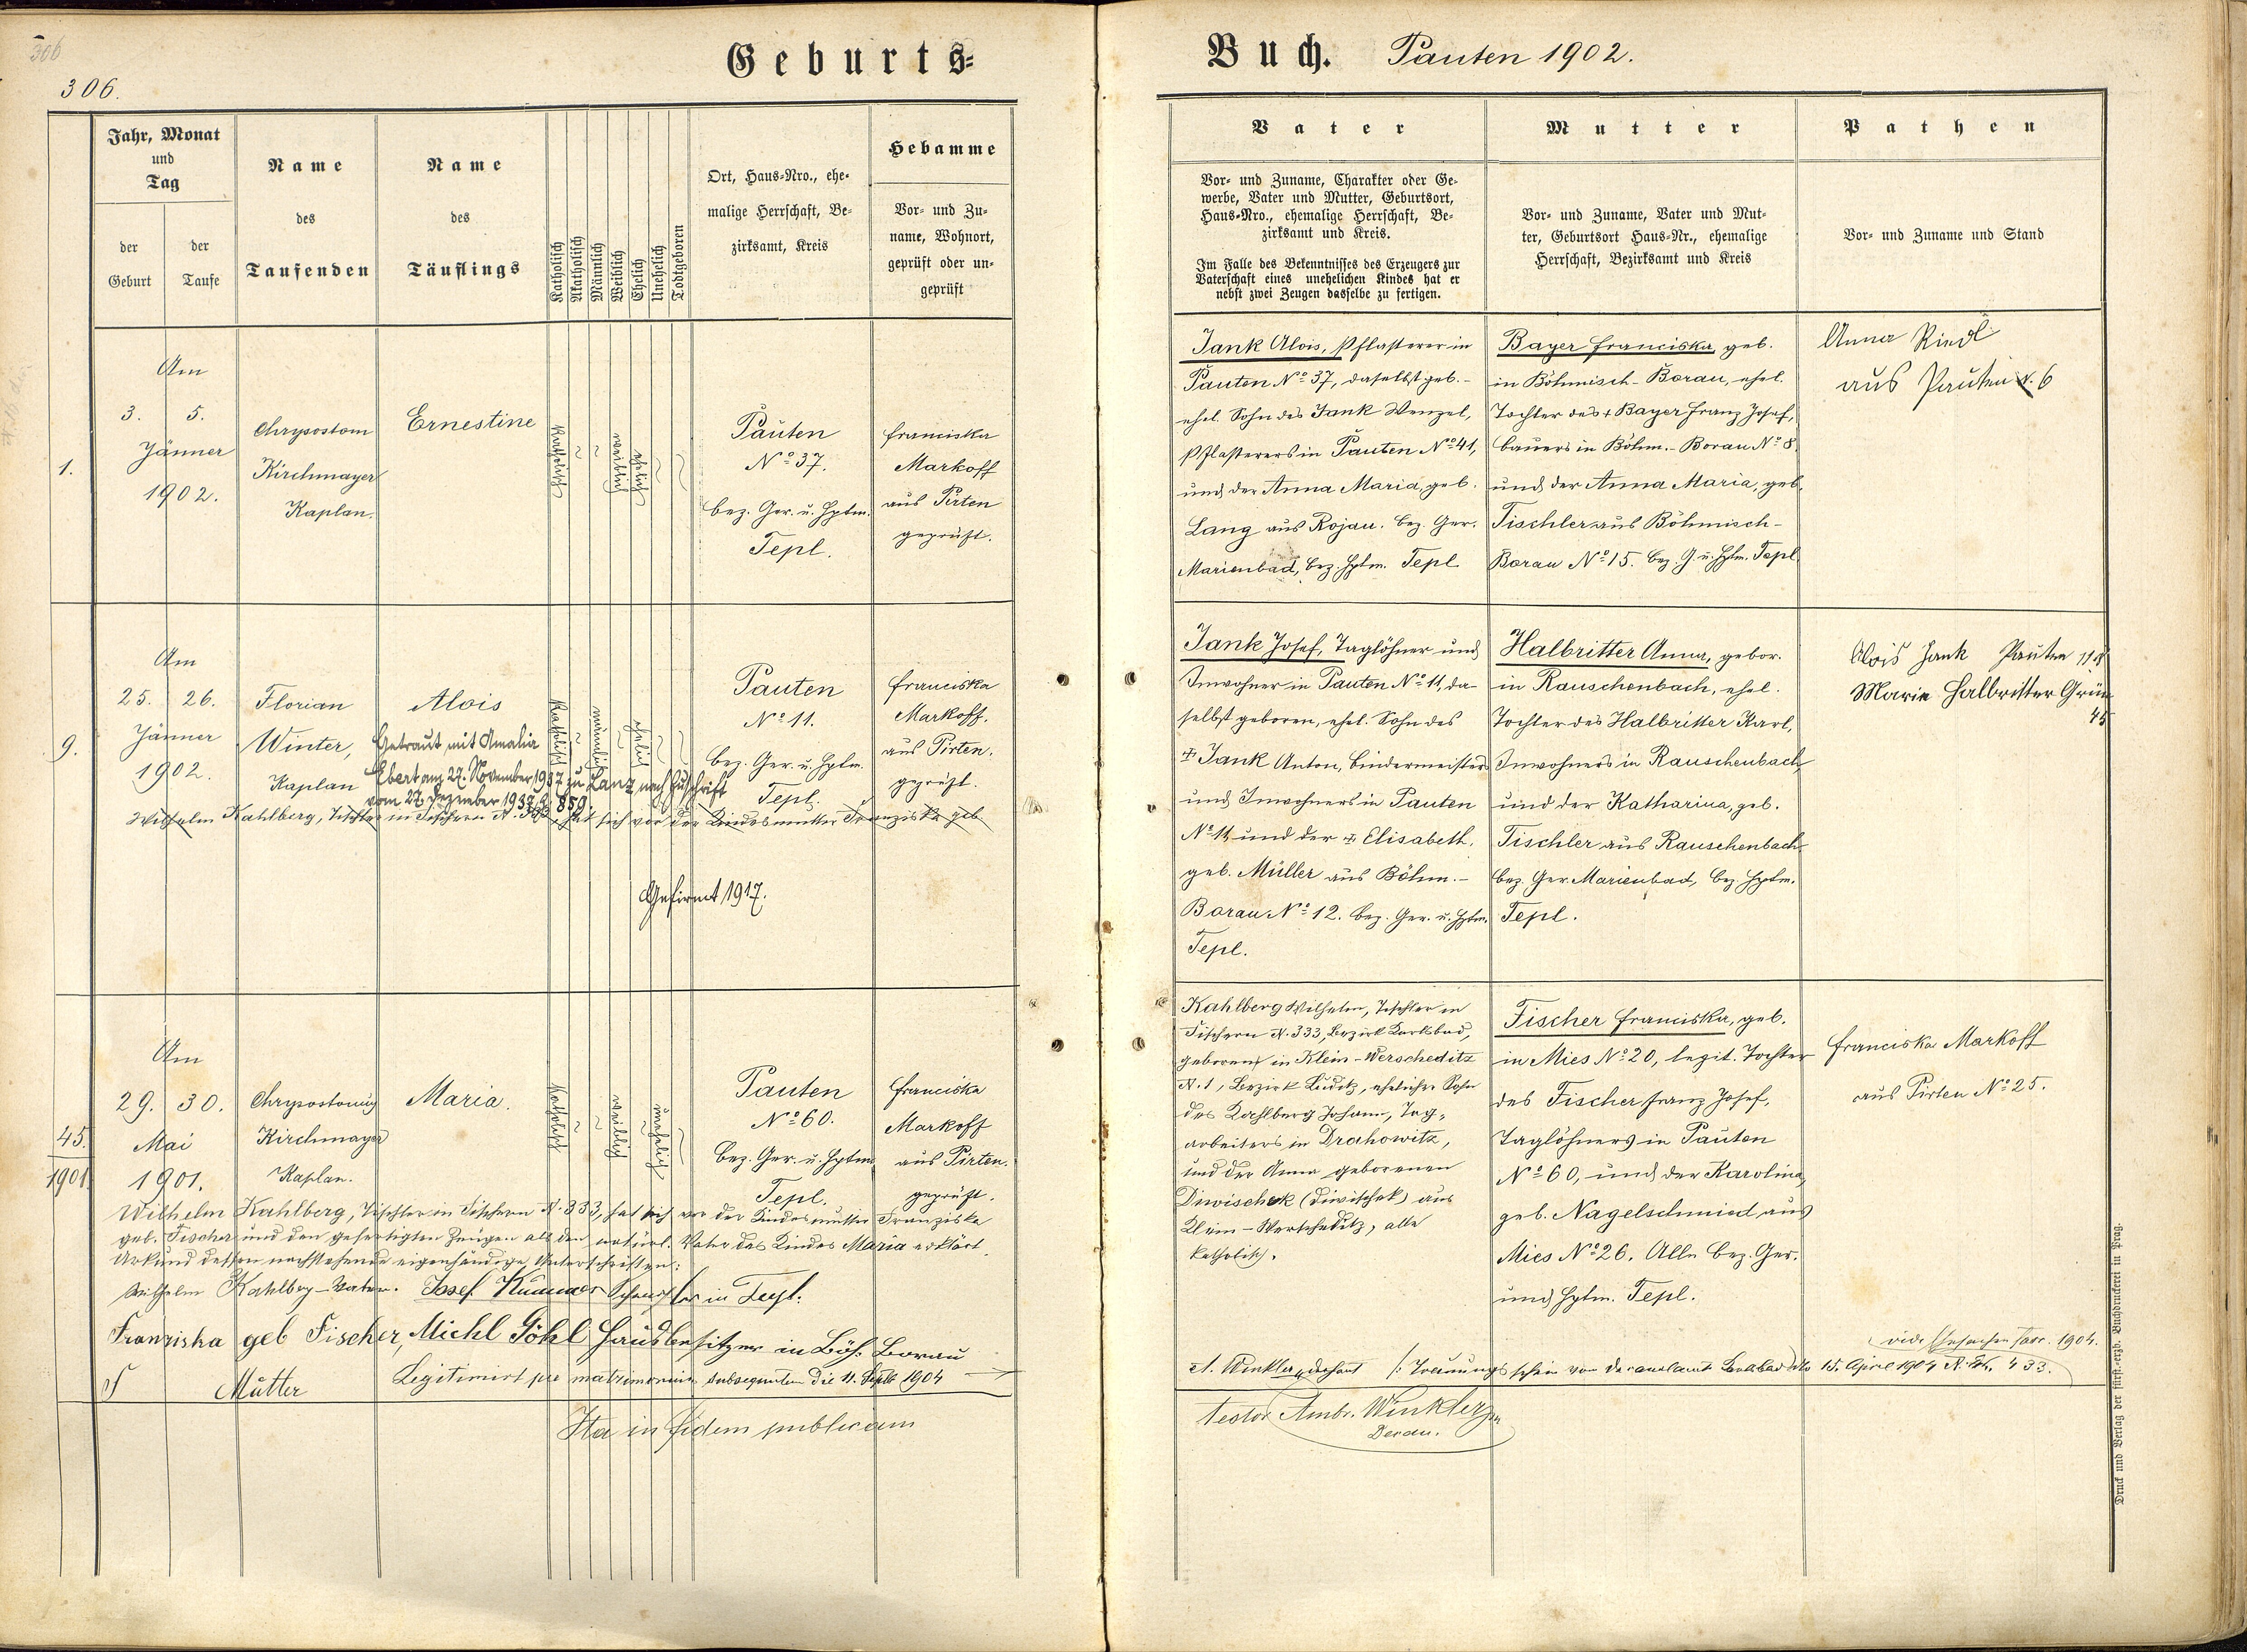 306
306.
Geburts=
Buch. Pauten 1902.
Jahr, Monat
und
Tag
der
Geburt
der
Taufe
Name
des
Taufenden
Name
des
Täuflings
Katholisch
Akatholisch
Männlich
Weiblich
Ehelich
Unehelich
Todtgeboren
Ort, Haus-Nro., ehe-
malige Herrschaft, Be-
zirksamt, Kreis
Hebamme
Vor- und Zu-
name, Wohnort,
geprüft oder un-
geprüft
Vater
Vor- und Zuname, Charakter oder Ge-
werbe, Vater und Mutter, Geburtsort,
Haus-Nro., ehemalige Herrschaft, Be-
zirksamt und Kreis.
Im Falle des Bekenntnisses des Erzeugers zur
Vaterschaft eines unehelichen Kindes hat er
nebst zwei Zeugen dasselbe zu fertigen.
Mutter
Vor- und Zuname, Vater und Mut-
ter, Geburtsort Haus-Nr., ehemalige
Herrschaft, Bezirksamt und Kreis
Pathen
Vor- und Zuname und Stand
1.
Am
3. 5.
Jänner
1902.
Chrysostom
Kirchmayer
Kaplan.
Ernestine
katholisch
weiblich
ehelich
Pauten
Nº 37.
bez. Ger. u. Hptm.
Tepl.
Franciska
Markoff
aus Pirten
geprüft.
Jank Alois, Pflasterer in
Pauten Nº 37, daselbst geb. -
ehel. Sohn des Jank Wenzel,
Pflasterers in Pauten Nº 41,
und der Anna Maria, geb.
Lang aus Rojau. bez. Ger.
Marienbad, bez. Hptm. Tepl
Bayer Franciska, geb.
in Böhmisch-Borau, ehel.
Tochter des + Bayer Franz Josef,
Bauers in Böhm.-Borau Nº 8.
und der Anna Maria, geb.
Tischler aus Böhmisch-
Borau Nº 15. bez. G. u. Hptm. Tepl.
Anna Riedl
aus Pauten N. 6
9.
Am
25. 26.
Jänner
1902.
Florian
Winter,
Kaplan
Alois
Getraut mit Amalia
Ebert am 27. November 1937 zu Lanz nach Zuschrift
vom 27. Dezember 1937 Z. 859.
katholisch
männlich
ehelich
Pauten
Nº 11.
bez. Ger. u. Hptm.
Tepl.
Franciska
Markoff.
aus Pirten.
geprüft.
Wilhelm Kahlberg, Tischler in Fischern N. 333, hat sich vor der Kindesmutter Franziska geb
Gefirmt 1917.
Jank Josef, Taglöhner und
Inwohner in Pauten Nº 11, da-
selbst geboren, ehel. Sohn des
+ Jank Anton, Bindermeisters
und Inwohners in Pauten
Nº 11, und der + Elisabeth,
geb. Müller aus Böhm.-
Borau Nº 12. bez. Ger. u. Hptm.
Tepl.
Halbritter Anna, gebor.
in Rauschenbach, ehel.
Tochter des Halbritter Karl,
Inwohners in Rauschenbach,
und der Katharina, geb.
Tischler aus Rauschenbach
bez. Ger. Marienbad, bez. Hptm.
Tepl.
Alois Jank Pauten 11
Marie Halbritter Grün
45
45.
1901.
Am
29. 30.
Mai
1901.
Chrysostomus
Kirchmayer
Kaplan.
Maria.
katholisch
weiblich
unehelich
Pauten
Nº 60.
bez. Ger. u. Hptm
Tepl.
Franciska
Markoff
aus Pirten.
geprüft.
Wilhelm Kahlberg, Tischler in Fischern N. 333, hat sich vor der Kindesmutter Franziska
geb. Fischer und den gefertigten Zeugen als den natürl. Vater des Kindes Maria erklärt.
Urkund dessen nachstehende eigenhändige Unterschriften:
Wilhelm Kahlberg - Vater. Josef in Tepl.
Franziska geb Fischer, Michl Göhl Hausbesitzer in Böh. Borau
Mutter Legitimirt per matrimonium subsequentem die 11. 1904
Ita in fidem publicam
Kahlberg Wilhelm, Tischler in
Fischern N. 333, Bezirk Karlsbad,
geboren in Klein-Werscheditz
N. 1, Bezirk Luditz, ehelicher Sohn
des Kahlberg Johann, Tag-
arbeiters in Drahowitz,
und der Anna geborenen
Diwischek (Diwischek) aus
Klein-Werscheditz, alle
katholisch.
Fischer Franciska, geb.
in Mies Nº 20, legit. Tochter
des Fischer Franz Josef,
Taglöhners in Pauten
Nº 60, und der Karolina,
geb. Nagelschmied aus
Mies Nº 26. Alle bez. Ger.
und Hptm. Tepl.
Franciska Markoff
aus Pirten Nº 25.
vide 1904.
A. Winkler, Dechant /: Trauungsschein vom Decanalamt Karlsbad dto 15. April 1904 N. 433.
testor Ambr. Winkler
Decan.
Druck und Verlag der fürst.-erzb. Buchdruckerei in Prag.